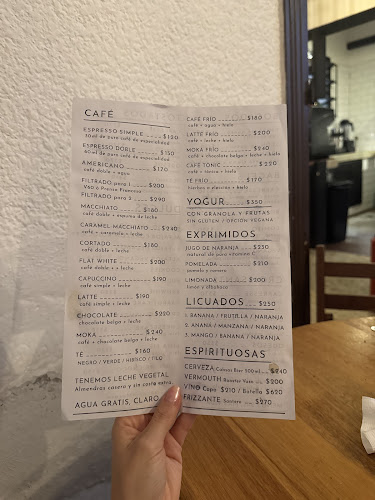 CAFÉ
ESPRESSO SIMPLE $120
30ml de puro café de especialidad
ESPRESSO DOBLE $150
60ml de puro café de especialidad
AMERICANO $170
café doble + agua
FILTRADO para 1 $200
V60 o Prensa Francesa
FILTRADO para 2 $290
MACCHIATO $180
café doble + espuma de leche
CARAMEL MACCHIATO $240
café + caramelo + leche
CORTADO $180
café doble + leche
FLAT WHITE $200
café doble + leche
CAPUCCINO $190
café simple + leche
LATTE $190
café simple + leche
CHOCOLATE $220
chocolate belga + leche
MOKA $240
café + chocolate belga + leche
TÉ $160
NEGRO / VERDE / HIBISCO / TILO
TENEMOS LECHE VEGETAL
Almendras casera y sin costo extra
AGUA GRATIS, CLARO
CAFÉ FRÍO $180
café + agua + hielo
LATTE FRÍO $200
café + leche + hielo
MOKA FRÍO $240
café + chocolate belga + leche + hielo
CAFÉ TONIC $220
café + tónica + hielo
TÉ FRÍO $170
YOGUR $350
CON GRANOLA Y FRUTAS
SIN GLUTEN / OPCIÓN VEGANA
EXPRIMIDOS
JUGO DE NARANJA $230
natural de pura vitamina C
POMELADA $210
pomelo y romero
LIMONADA $200
limón y albahaca
LICUADOS $250
1. BANANA / FRUTILLA / NARANJA
2. ANANÁ / MANZANA / NARANJA
3. MANGO / BANANA / NARANJA
ESPIRITUOSAS
CERVEZA Cabesas Bier 500ml $240
VERMOUTH Rooster Vum $200
VINO Copa $210 / Botella $620
FRIZZANTE Santero $270